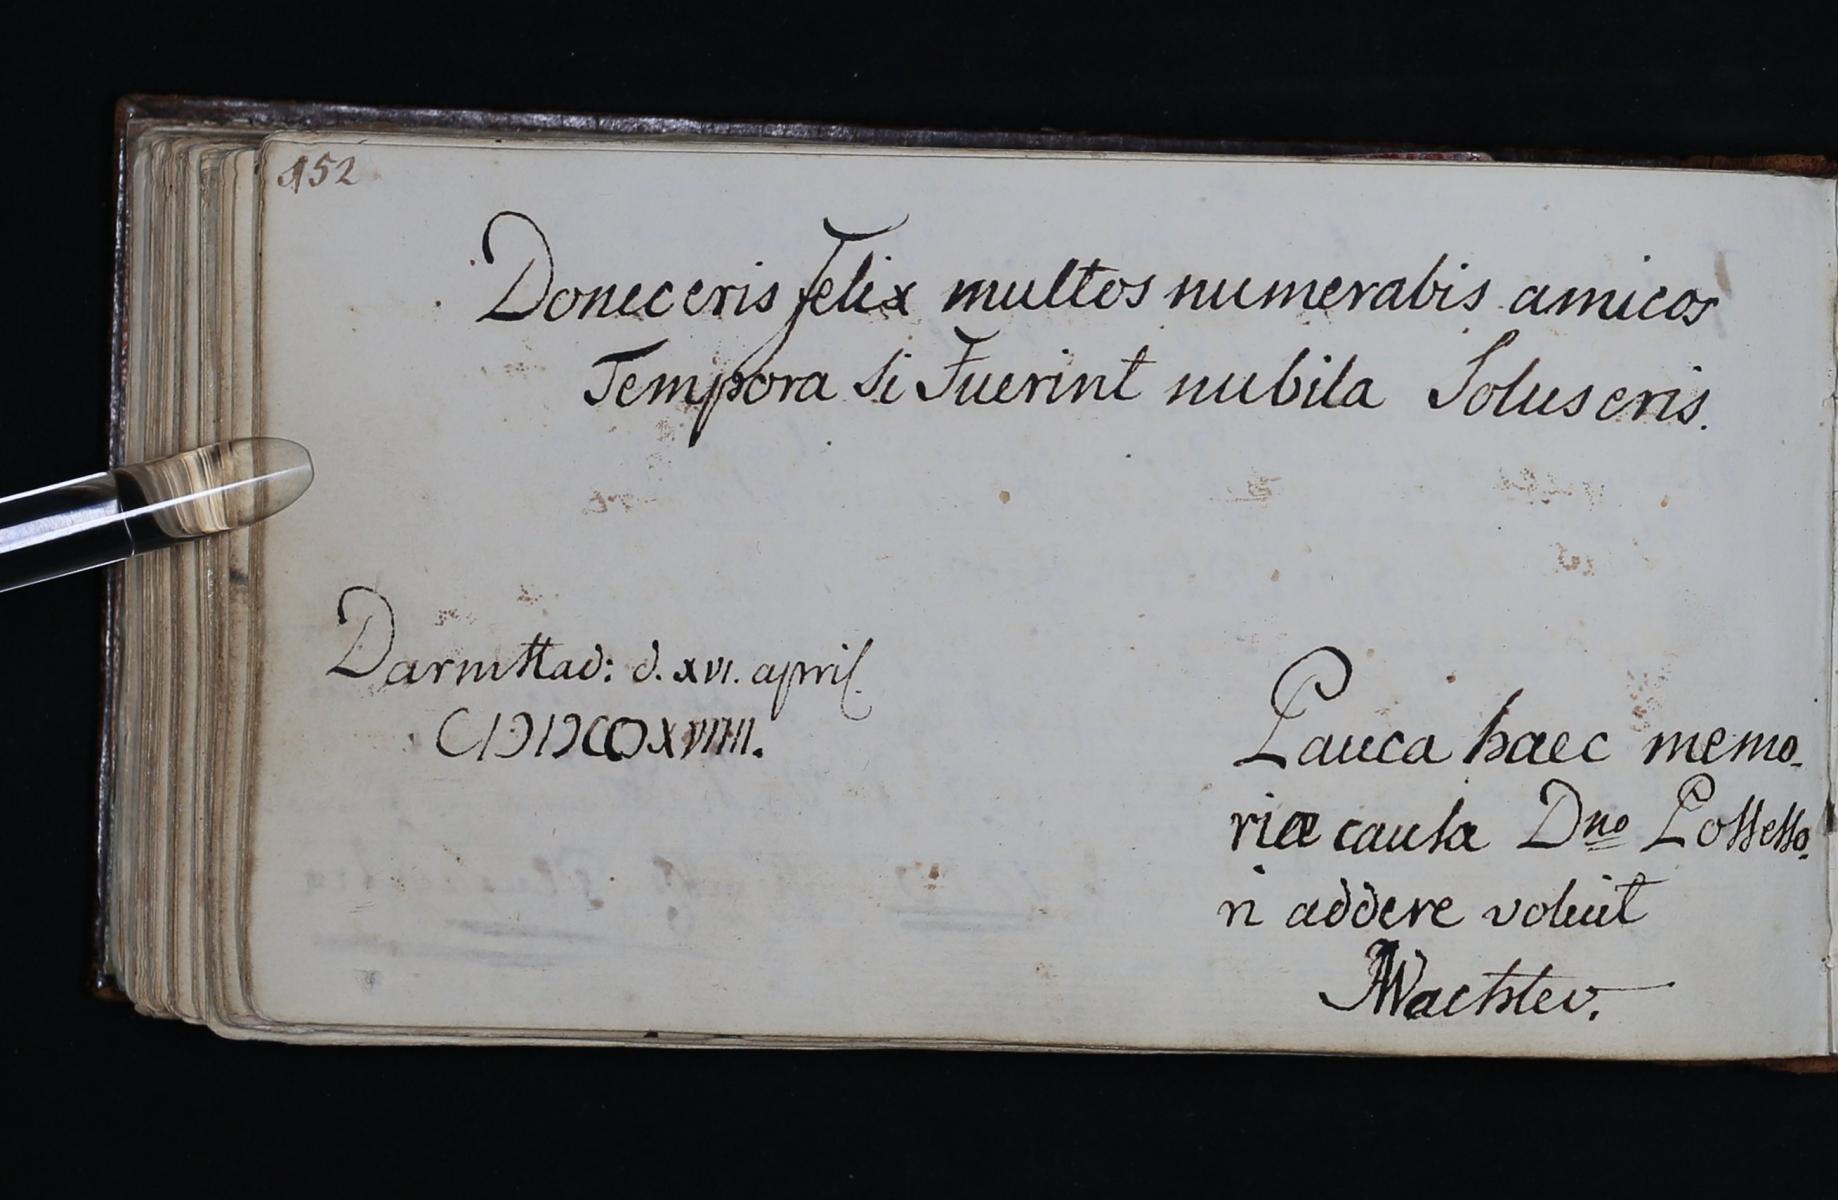 152
Donec eris felix multos numerabis amicos
Tempora si Fuerint nubila Solus eris.
Darmstad: d. XVI. april.
Pauca haec memo-
riæ causa Dno Possesso-
ri addere voluit
Wachter.